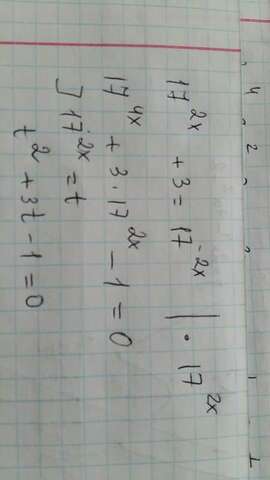 17^{2x} + 3 = 17^{-2x} | · 17^{2x}
17^{4x} + 3 · 17^{2x} - 1 = 0
] 17^{2x} = t
t^2 + 3t - 1 = 0